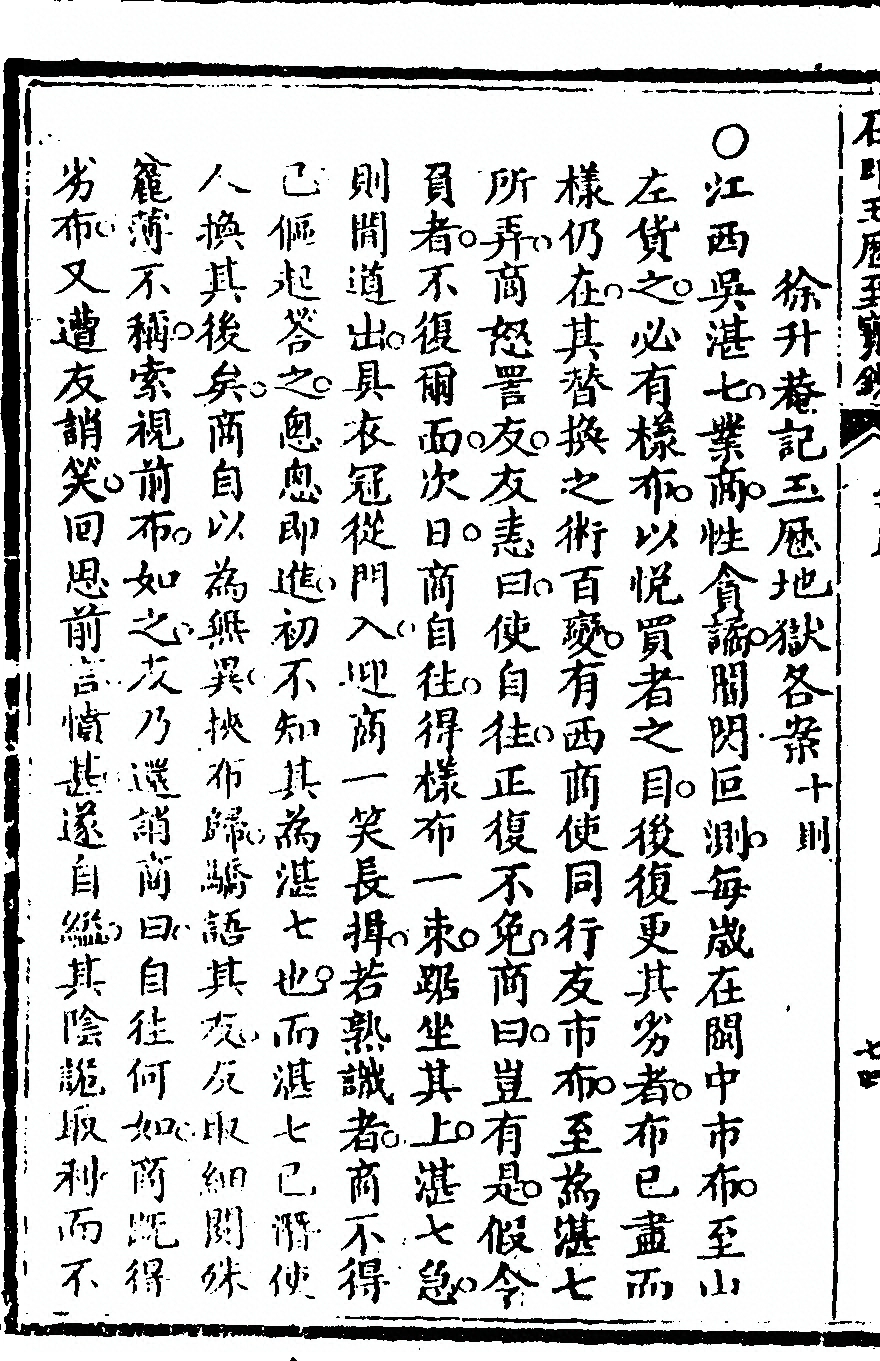 徐升菴記玉歷地獄各案十則
〇江西吳湛七。業商。性貪譎。閃閃叵測。每歲在閩中市布。至山
左貨之。必有樣布。以悅買者之目。後復更其劣者。布已盡而
樣仍在。其替換之術百變。有西商使同行友市布。至為湛七
所弄。商怒詈友。友恚曰。使自往。正復不免。商曰。豈有是。假令
負者。不復爾面。次日。商自往。得樣布一束。踞坐其上。湛七急。
則間道出。具衣冠從門入。迎商一笑長揖。若熟識者。商不得
已傴起答之。恩恩即進。初不知其為湛七也。而湛七已潛使
人換其後矣。商自以為無異。挾布歸。驕語其友。反取細閱。殊
麄薄不稱。索視前布。如之。友乃還誚商曰。自往何如。商既得
劣布。又遭友誚笑。回思前言。憤甚。遂自縊。其陰詭取利而不